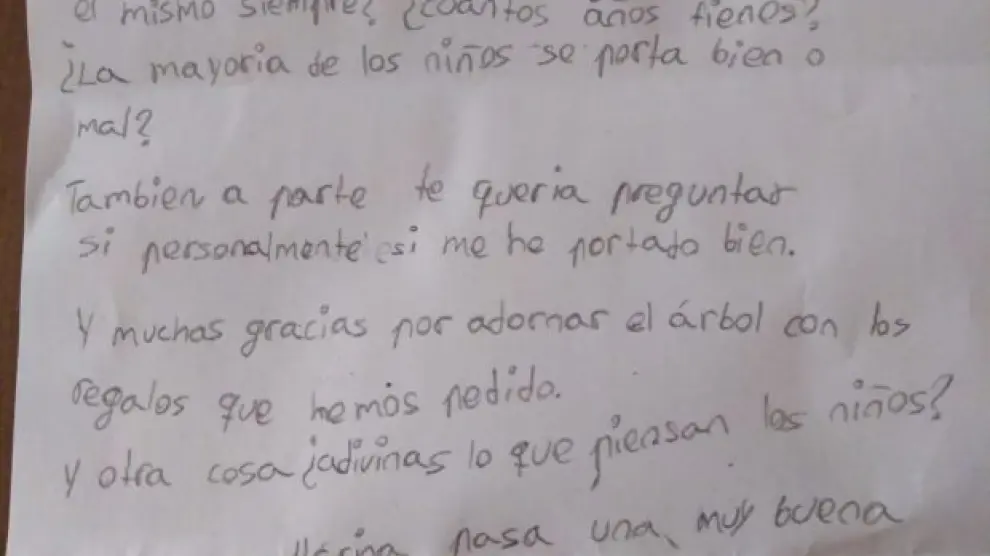 el mismo siempre? ¿cuantos años tienes?
¿La mayoria de los niños se porta bien o
mal?
Tambien a parte te queria preguntar
si personalmente si me he portado bien.
Y muchas gracias por adornar el árbol con los
regalos que hemos pedido.
Y otra cosa ¿adivinas lo que piensan los niños?
pasa una muy buena